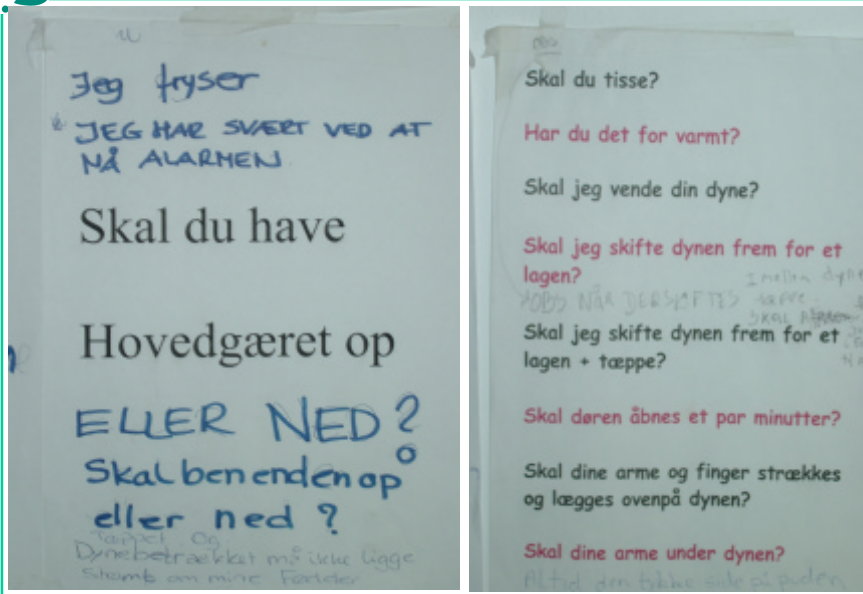 Jeg fryser
JEG HAR SVÆRT VED AT
NÅ ALARMEN
Skal du have
Hovedgæret op
ELLER NED?
Skal benenden op
eller ned ?
Tæppet Og
Dynebetrækket må ikke ligge
Stramt om mine Fødder
obs
Skal du tisse?
Har du det for varmt?
Skal jeg vende din dyne?
Skal jeg skifte dynen frem for et
lagen?
Imellem dyne
OBS NÅR DER SKIFTES tæppe
SKAL
Skal jeg skifte dynen frem for et
lagen + tæppe?
Skal døren åbnes et par minutter?
Skal dine arme og finger strækkes
og lægges ovenpå dynen?
Skal dine arme under dynen?
Altid den tykke side på puden